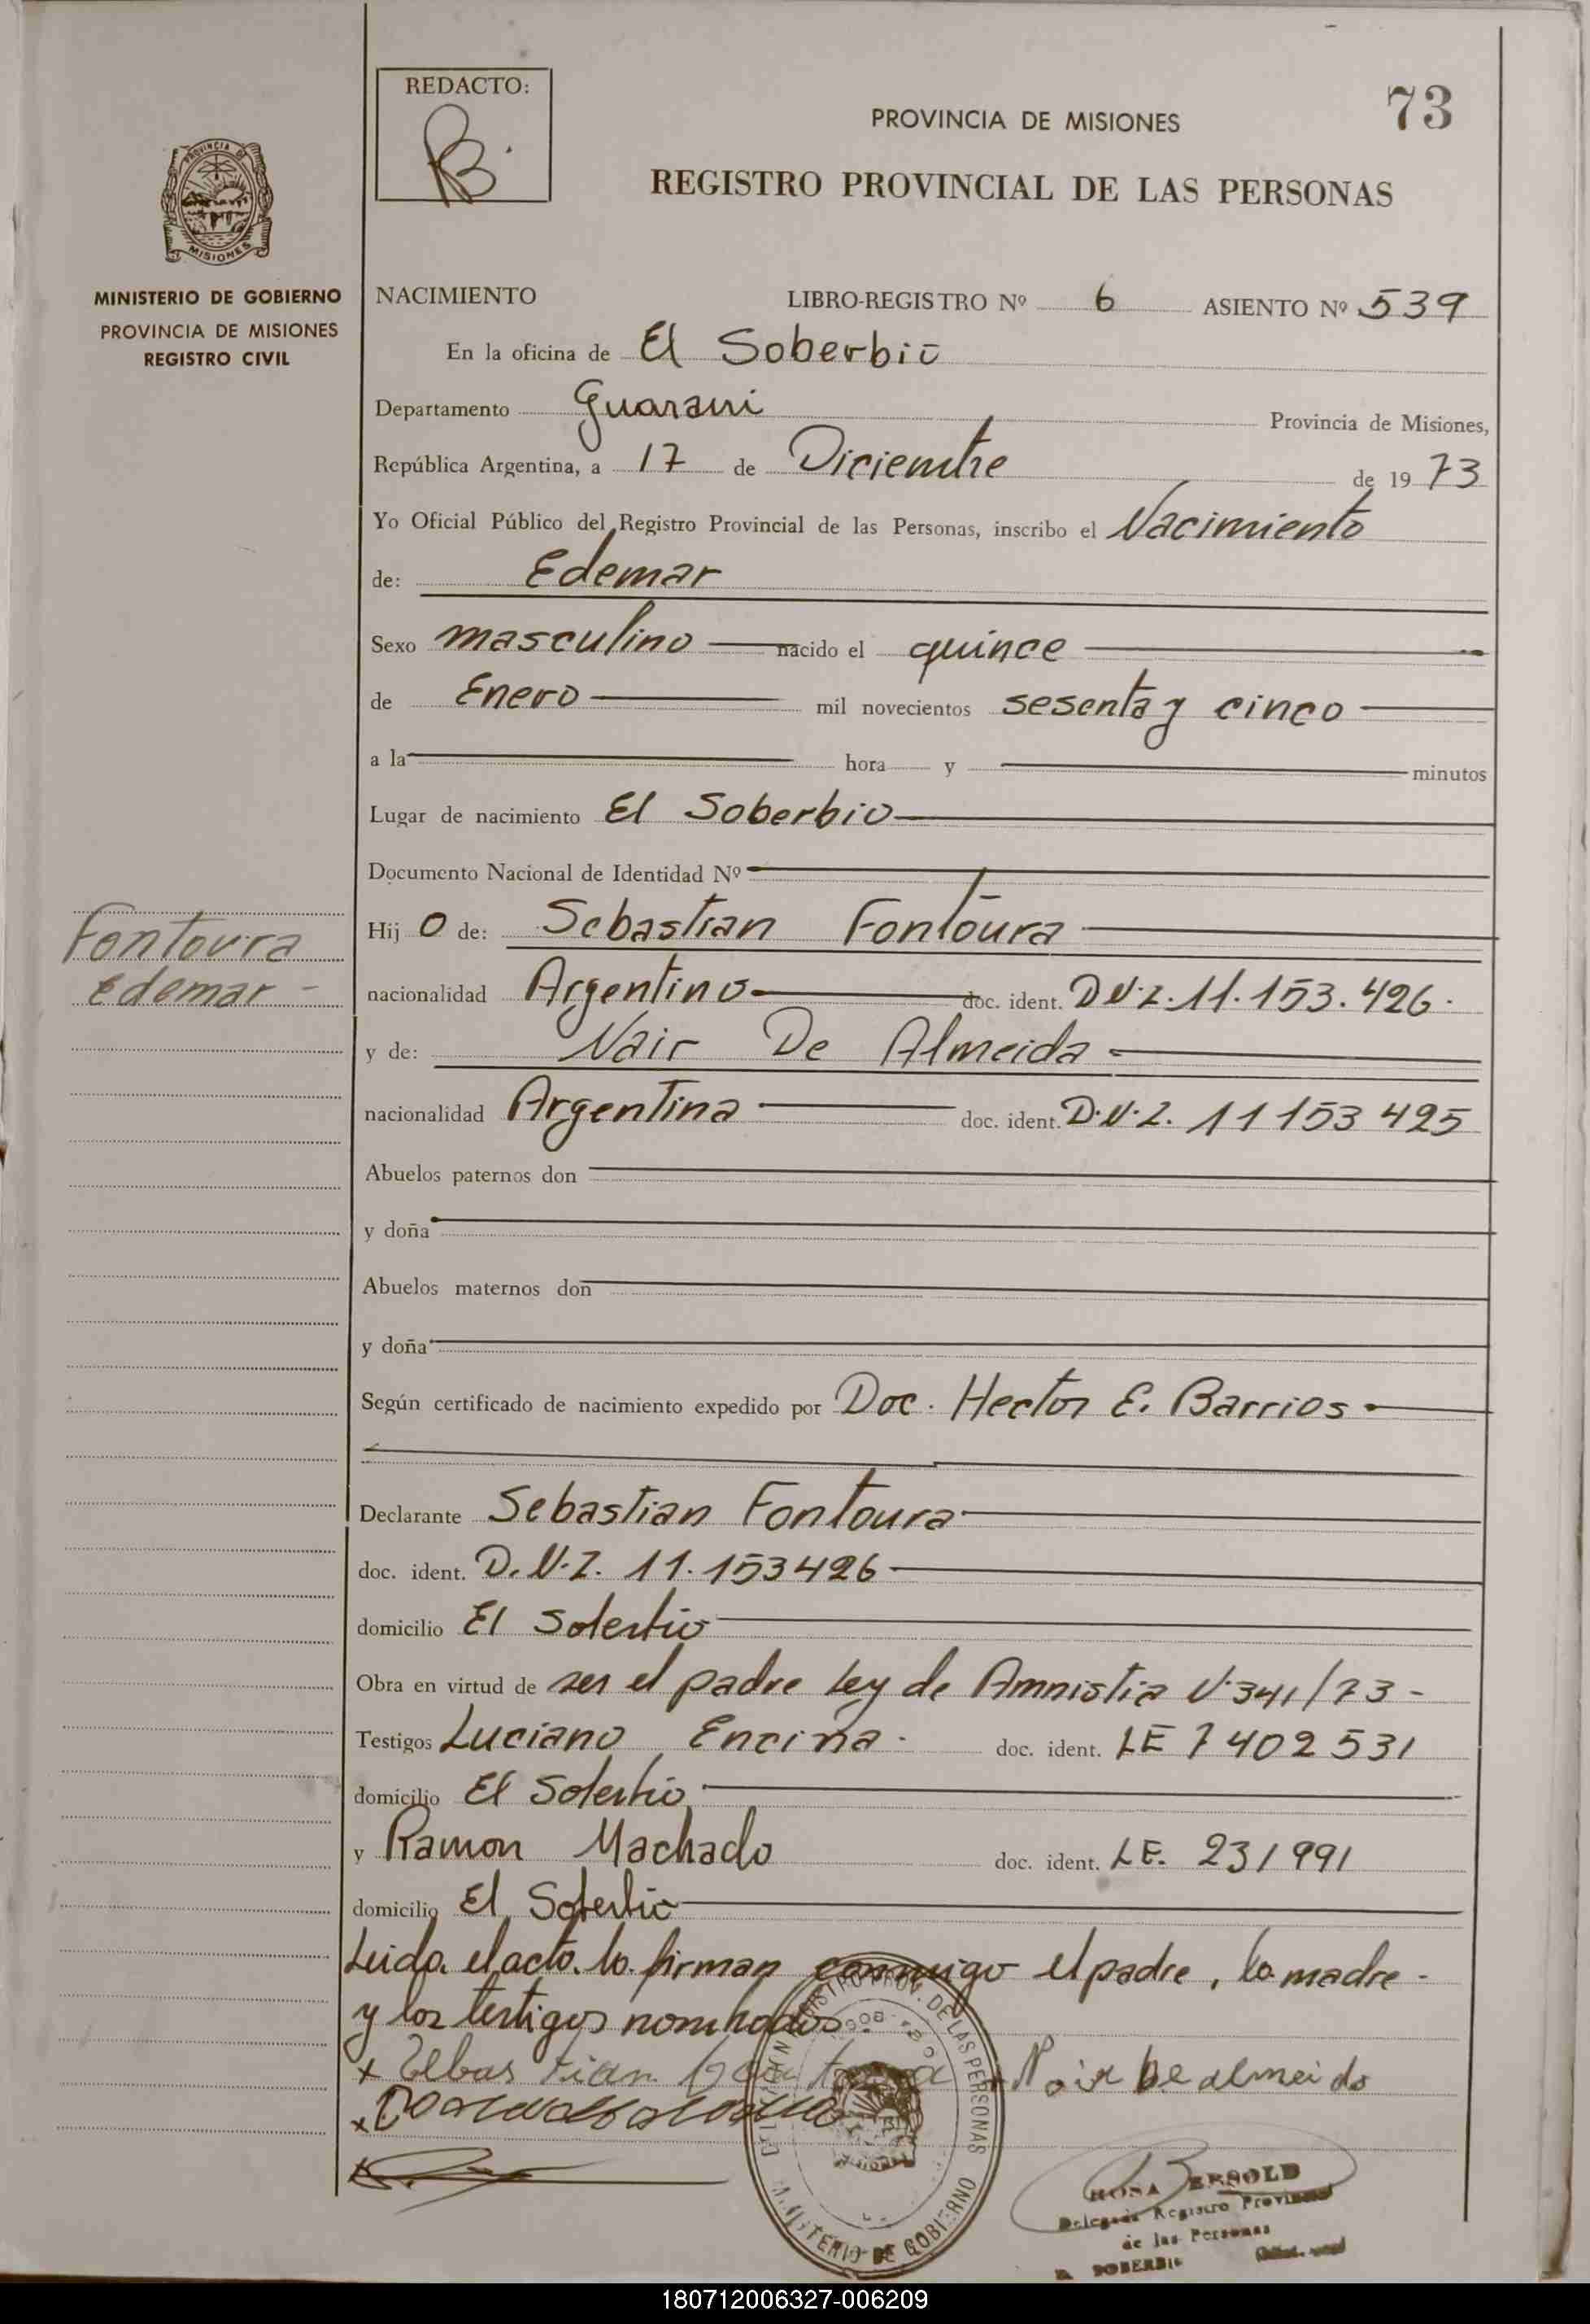 REDACTO:
73
PROVINCIA DE MISIONES
REGISTRO PROVINCIAL DE LAS PERSONAS
PROVINCIA DE
MISIONES
MINISTERIO DE GOBIERNO
PROVINCIA DE MISIONES
REGISTRO CIVIL
NACIMIENTO LIBRO-REGISTRO Nº 6 ASIENTO Nº 539
En la oficina de El Soberbio
Departamento Guarani Provincia de Misiones,
República Argentina, a 17 de Diciembre de 1973
Yo Oficial Público del Registro Provincial de las Personas, inscribo el Nacimiento
de: Edemar
Sexo masculino nacido el quince
de Enero mil novecientos sesenta y cinco
a la hora y minutos
Lugar de nacimiento El Soberbio
Documento Nacional de Identidad Nº
Fontoura
Edemar -
Hijo de: Sebastian Fontoura
nacionalidad Argentino doc. ident. D.N.I. 11.153.426.
y de: Nair De Almeida
nacionalidad Argentina doc. ident. D.N.I. 11153425
Abuelos paternos don
y doña
Abuelos maternos don
y doña
Según certificado de nacimiento expedido por Doc. Hector E. Barrios
Declarante Sebastian Fontoura
doc. ident. D.N.I. 11.153426
domicilio El Soberbio
Obra en virtud de ser el padre Ley de Amnistia N. 341/73 -
Testigos Luciano Encina. doc. ident. LE 7402531
domicilio El Soberbio
y Ramon Machado doc. ident. LE. 231991
domicilio El Soberbio
Leida el acto. lo firman conmigo el padre, la madre -
y los testigos nombrados.
REGISTRO PROV. DE LAS PERSONAS
MINISTERIO DE GOBIERNO
ROSA BERSOLD
Delegada Registro Provincial
de las Personas
EL SOBERBIO
180712006327-006209